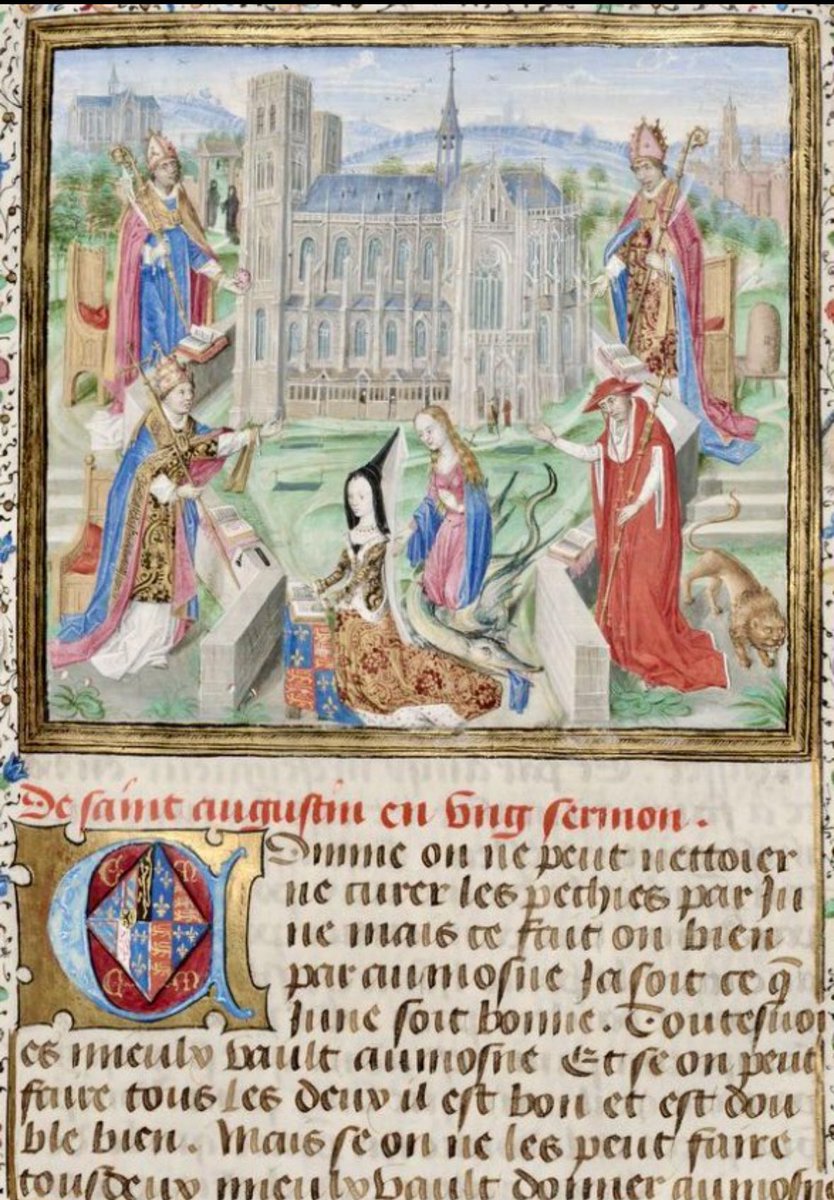 De saint augustin en vng sermon.
Comme on ne peut nettoier
ne curer les pechies par Ju
ne mais ce fait on bien
par aumosne Jasoit ce q̄
June soit bonne. Toutesuoi
es mieulx vault aumosne Et se on peut
faire tous les deux il est bon et est dou
ble bien. Mais se on ne les peut faire
tousdeux mieulx vault donner aumosn